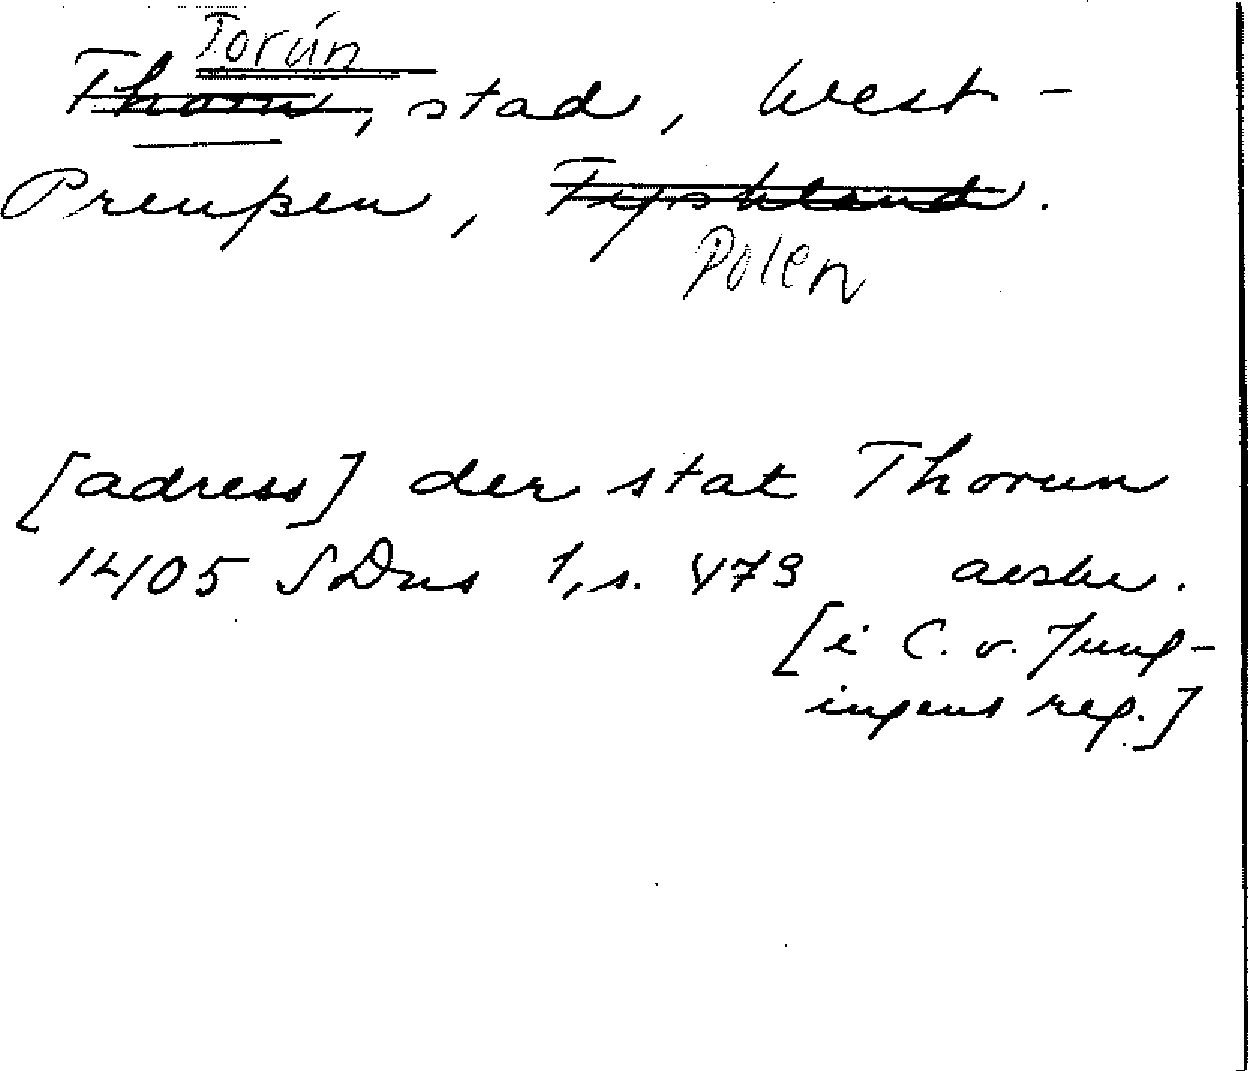 Torún
Thorn, stad, West-
Preußen, Tyskland.
Polen
[adress] der stat Thorun
1405 SDns 1, s. 479 avskr.
[i C. v. Jung-
ingens reg.]